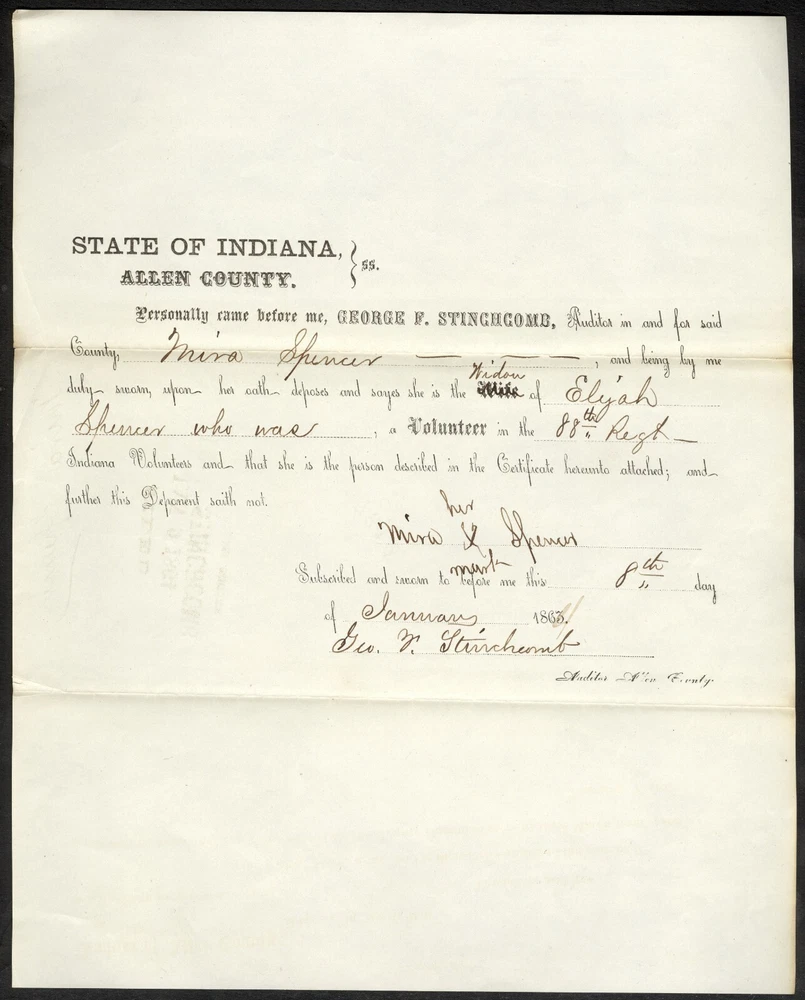 STATE OF INDIANA, } ss.
ALLEN COUNTY.
Personally came before me, GEORGE F. STINCHCOMB, Auditor in and for said
County, Mira Spencer — — — , and being by me
Widow
duly sworn, upon her oath deposes and sayes she is the Wife of Elijah
Spencer who was , a Volunteer in the 88th Regt
Indiana Volunteers and that she is the person described in the Certificate hereunto attached; and
further this Deponent saith not.
her
Mira X Spencer
mark
Subscribed and sworn to before me this 8th day
of January 1863.
Geo. F. Stinchcomb
Auditor Allen County.